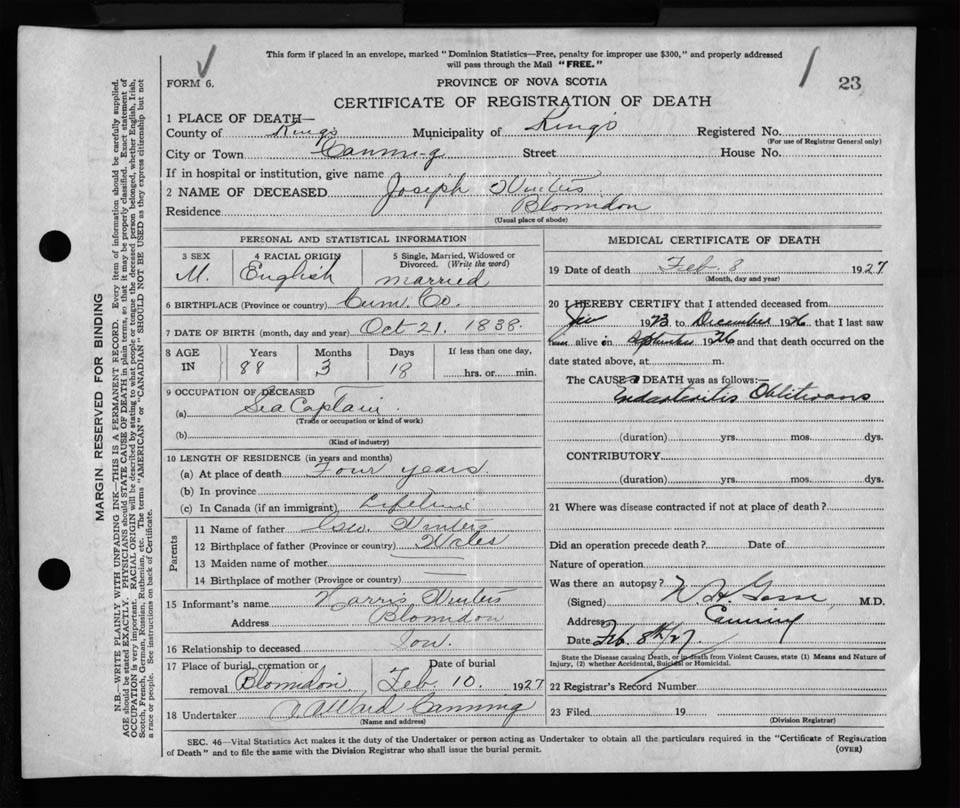 This form if placed in an envelope, marked "Dominion Statistics—Free, penalty for improper use $300," and properly addressed
will pass through the Mail "FREE."
23
FORM 6.
PROVINCE OF NOVA SCOTIA
CERTIFICATE OF REGISTRATION OF DEATH
1 PLACE OF DEATH—
County of Kings Municipality of King's Registered No.
(For use of Registrar General only)
City or Town Canning Street House No.
If in hospital or institution, give name
2 NAME OF DECEASED Joseph Winters
Residence Blomidon
(Usual place of abode)
PERSONAL AND STATISTICAL INFORMATION
3 SEX 4 RACIAL ORIGIN 5 Single, Married, Widowed or
Divorced. (Write the word)
M. English married
6 BIRTHPLACE (Province or country) Cum. Co.
7 DATE OF BIRTH (month, day and year) Oct 21. 1838.
8 AGE Years Months Days If less than one day,
IN 88 3 18 hrs. or min.
9 OCCUPATION OF DECEASED
(a) Sea Captain
(Trade or occupation or kind of work)
(b)
(Kind of industry)
10 LENGTH OF RESIDENCE (in years and months)
(a) At place of death Four years.
(b) In province
(c) In Canada (if an immigrant) Lifetime
Parents
11 Name of father Geo. Winters
12 Birthplace of father (Province or country) Wales
13 Maiden name of mother —
14 Birthplace of mother (Province or country) —
15 Informant's name Harris Winters
Address Blomidon
16 Relationship to deceased Son.
17 Place of burial, cremation or Date of burial
removal Blomidon. Feb 10. 1927
18 Undertaker Ward Canning
(Name and address)
MEDICAL CERTIFICATE OF DEATH
19 Date of death Feb. 8 1927
(Month, day and year)
20 I HEREBY CERTIFY that I attended deceased from
1923 to December 1926 that I last saw
him alive on September 1926 and that death occurred on the
date stated above, at m.
The CAUSE OF DEATH was as follows:—
Endarteritis Obliterans
(duration) yrs. mos. dys.
CONTRIBUTORY
(duration) yrs. mos. dys.
21 Where was disease contracted if not at place of death?
Did an operation precede death? Date of
Nature of operation
Was there an autopsy?
(Signed) W. H. M.D.
Address Canning
Date Feb. 8th/27.
State the Disease causing Death, or in death from Violent Causes, state (1) Means and Nature of
Injury, (2) whether Accidental, Suicidal or Homicidal.
22 Registrar's Record Number
23 Filed 19
(Division Registrar)
SEC. 46—Vital Statistics Act makes it the duty of the Undertaker or person acting as Undertaker to obtain all the particulars required in the "Certificate of Registration
of Death" and to file the same with the Division Registrar who shall issue the burial permit.
(OVER)
MARGIN RESERVED FOR BINDING
N.B.—WRITE PLAINLY, WITH UNFADING INK—THIS IS A PERMANENT RECORD. Every item of information should be carefully supplied.
AGE should be stated EXACTLY. PHYSICIANS should STATE CAUSE OF DEATH in plain terms, so that it may be properly classified. Exact statement of
OCCUPATION is very important. RACIAL ORIGIN will be described by stating to what people or tongue the deceased person belonged, whether English, Irish,
Scotch, French, German, Russian, Ruthenian, etc. The terms "AMERICAN" or "CANADIAN" SHOULD NOT BE USED as they express citizenship but not
a race or people. See instructions on back of Certificate.